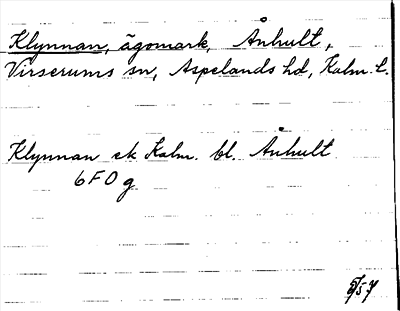 Klynnan, ägomark, Åhult,
Virserums sn, Aspelands hd, Kalm. l.
Klynnan ek Kalm. bl. Åhult
6F0g
5/57